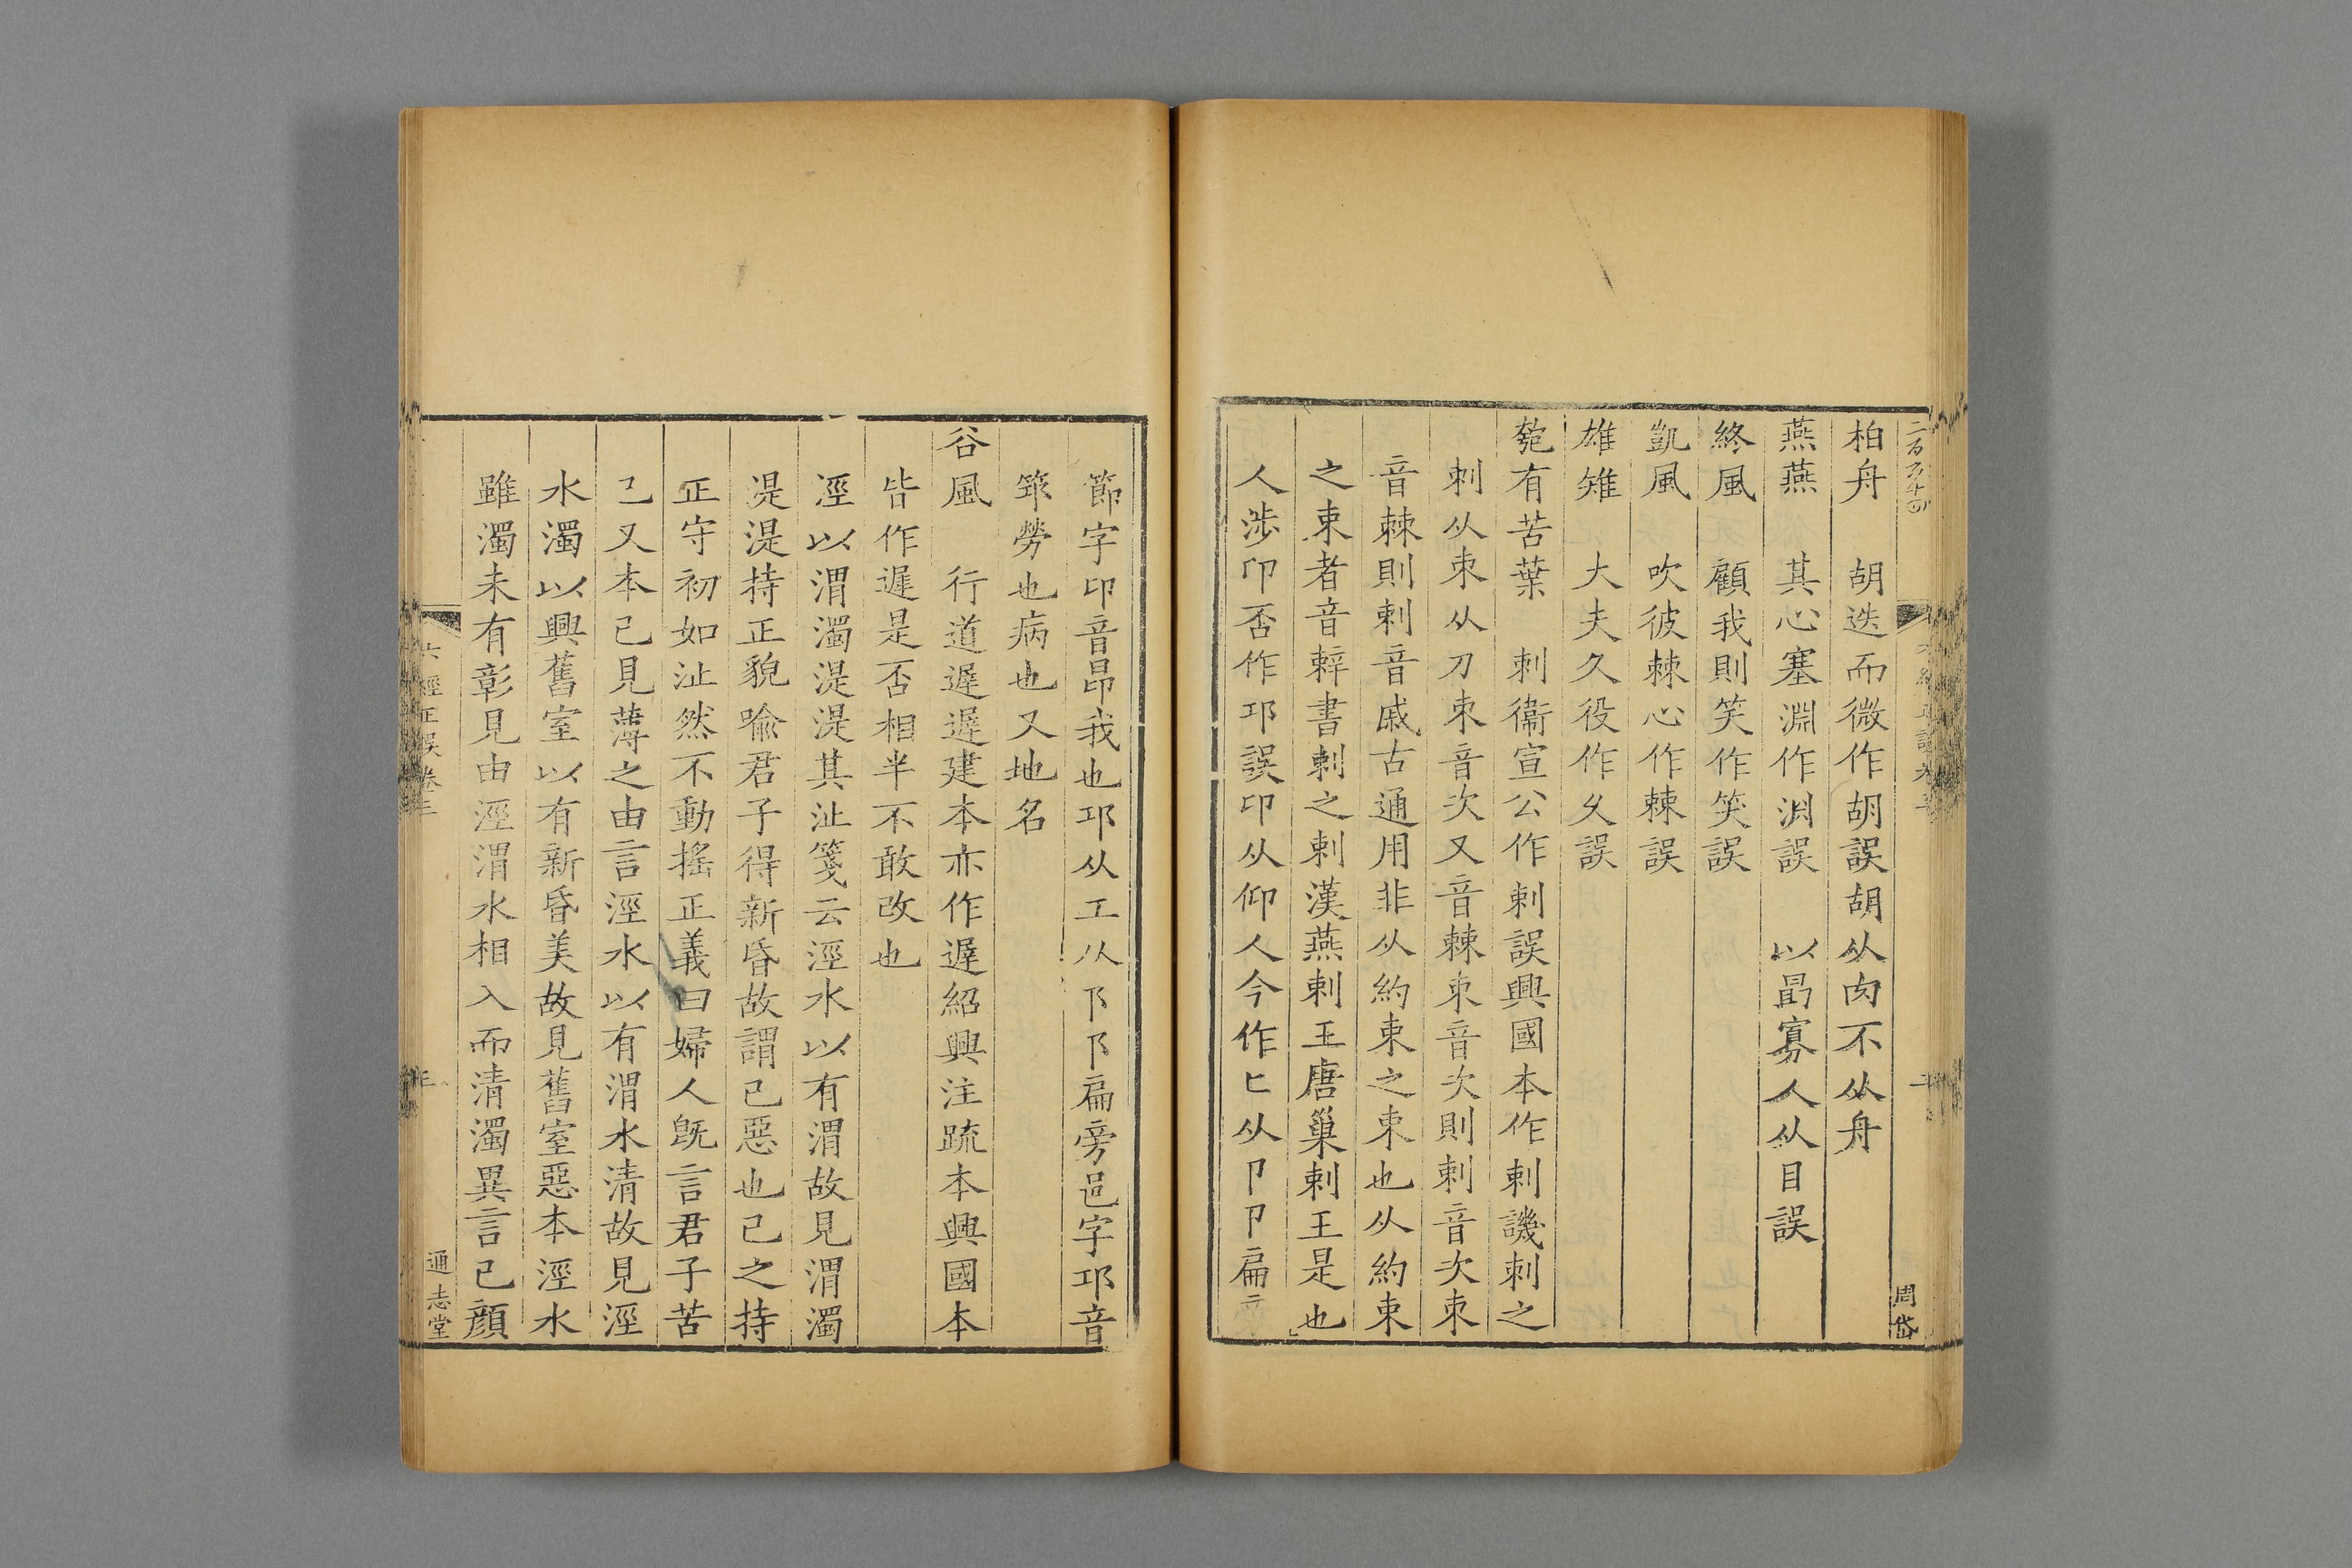 柏舟　胡迭而微作胡誤胡从肉不从舟
燕燕　其心塞淵作渕誤　以勗寡人从目誤
終風　顧我則笑作笑誤
凱風　吹彼棘心作棘誤
雄雉　大夫久役作夊誤
匏有苦葉　刺衞宣公作剌誤興國本作剌譏刺之
刺从朿从刀朿音次又音棘朿音次則刺音次朿
音棘則刺音戚古通用非从約束之束也从約束
之束者音辢書剌之剌漢燕剌王唐巢剌王是也
人涉卬否作邛誤卬从仰人今作匕从卩卩扁
節字卬音昂我也邛从工从阝阝扁旁邑字邛音
筇勞也病也又地名
谷風　行道遲遲建本亦作遲紹興注疏本興國本
皆作遲是否相半不敢改也
涇以渭濁湜湜其沚箋云涇水以有渭故見渭濁
湜湜持正貌喻君子得新昏故謂己惡也己之持
正守初如沚然不動搖正義曰婦人旣言君子苦
己又本己見薄之由言涇水以有渭水清故見涇
水濁以興舊室以有新昏美故見舊室惡本涇水
雖濁未有彰見由涇渭水相入而清濁異言己顔
六經正誤卷三
通志堂
周岱